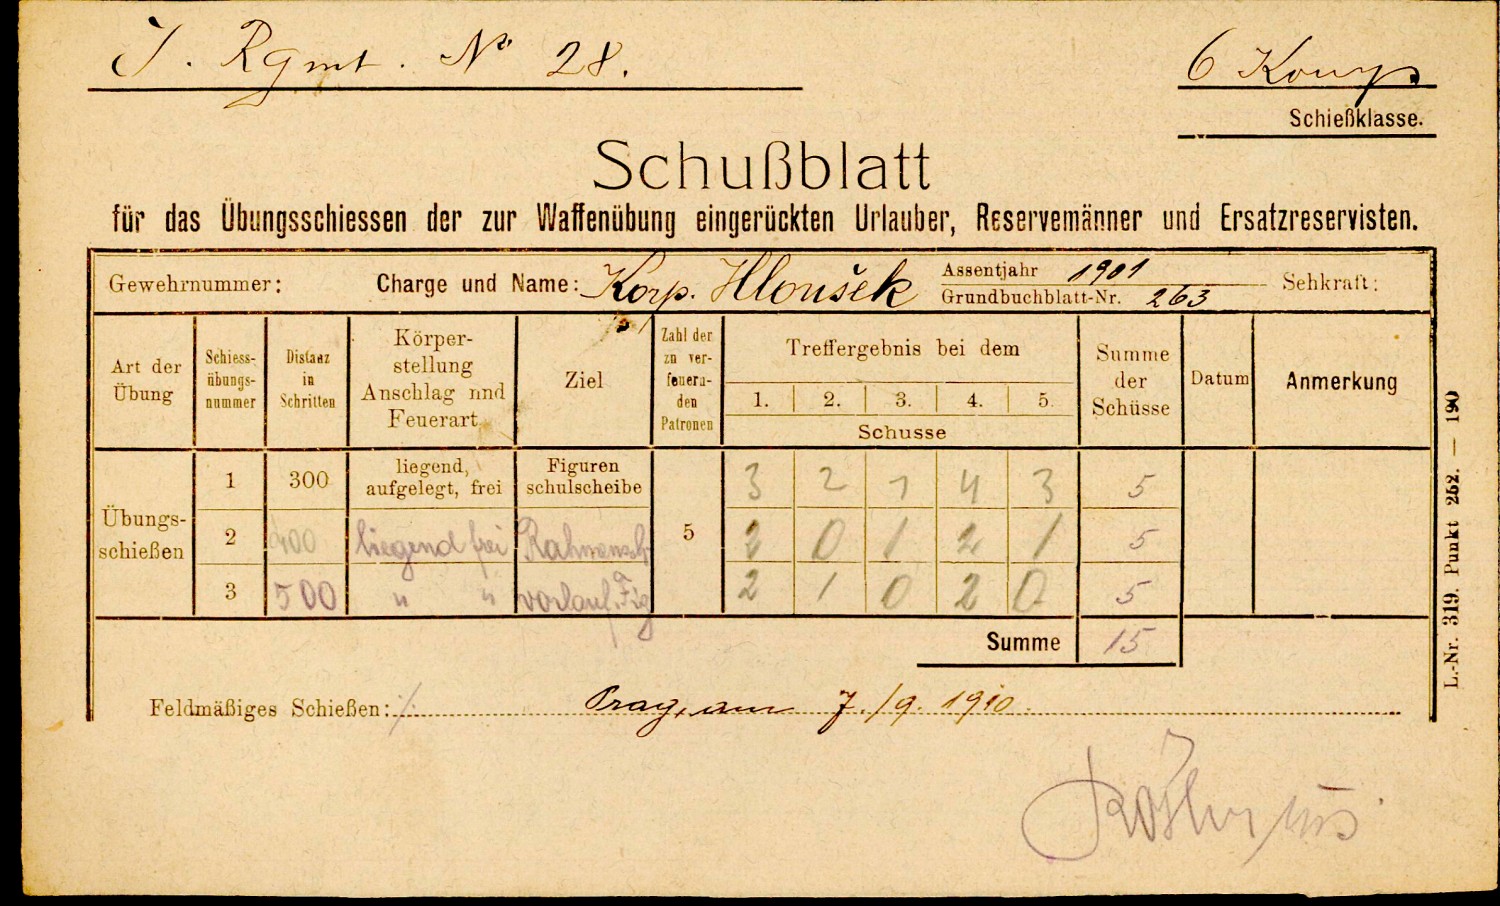 J. Rgmt. № 28.
6 Komp
Schießklasse.
Schußblatt
für das Übungsschiessen der zur Waffenübung eingerückten Urlauber, Reservemänner und Ersatzreservisten.
Gewehrnummer: Charge und Name: Korp. Hloušek Assentjahr 1901 Sehkraft:
Grundbuchblatt-Nr. 263
Art der Übung
Schiess-übungs-nummer
Distanz in Schritten
Körper-stellung Anschlag und Feuerart
Ziel
Zahl der zu ver-feuern-den Patronen
Treffergebnis bei dem
1. 2. 3. 4. 5.
Schusse
Summe der Schüsse
Datum
Anmerkung
Übungs-schießen
1 300 liegend, aufgelegt, frei Figuren schulscheibe 5 3 2 1 4 3 5
2 400 liegend frei Rahmensch. 2 0 1 2 1 5
3 500 " " vorlauf. Fig 2 1 0 2 0 5
Summe 15
Feldmäßiges Schießen: Prag, am 7./9. 1910.
L.-Nr. 319. Punkt 252. — 190